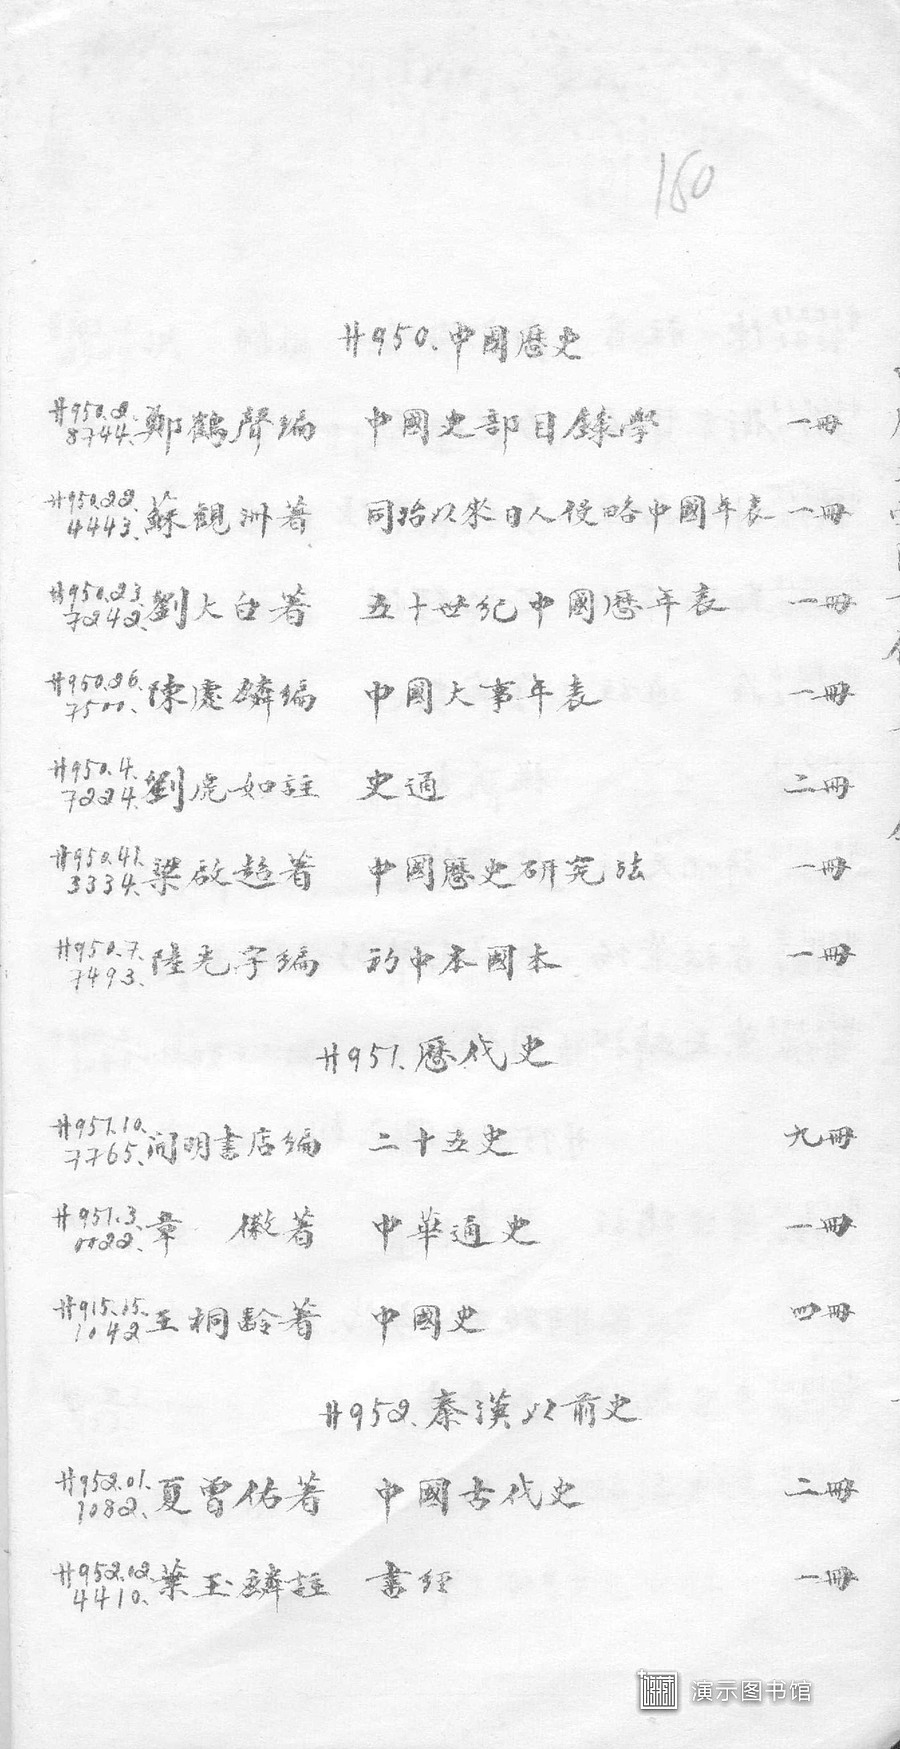 160
廿950.中國歷史
廿950.2.
8744.鄭鶴聲編 中國史部目錄學 一冊
廿950.22.
4443.蘇觀洲著 同治以來日人侵略中國年表 一冊
廿950.23.
7242.劉大白著 五十世紀中國歷年表 一冊
廿950.26.
7500.陳慶麟編 中國大事年表 一冊
廿950.4.
7224.劉虎如註 史通 二冊
廿950.41.
3334.梁啟超著 中國歷史研究法 一冊
廿950.7.
7493.陸光宇編 初中本國本 一冊
廿951.歷代史
廿951.10.
7765.開明書店編 二十五史 九冊
廿951.3.
0022.章 嶔著 中華通史 一冊
廿915.15.
1042.王桐齡著 中國史 四冊
廿952.秦漢以前史
廿952.01.
1082.夏曾佑著 中國古代史 二冊
廿952.02.
4410.葉玉麟註 書經 一冊
演示图书馆